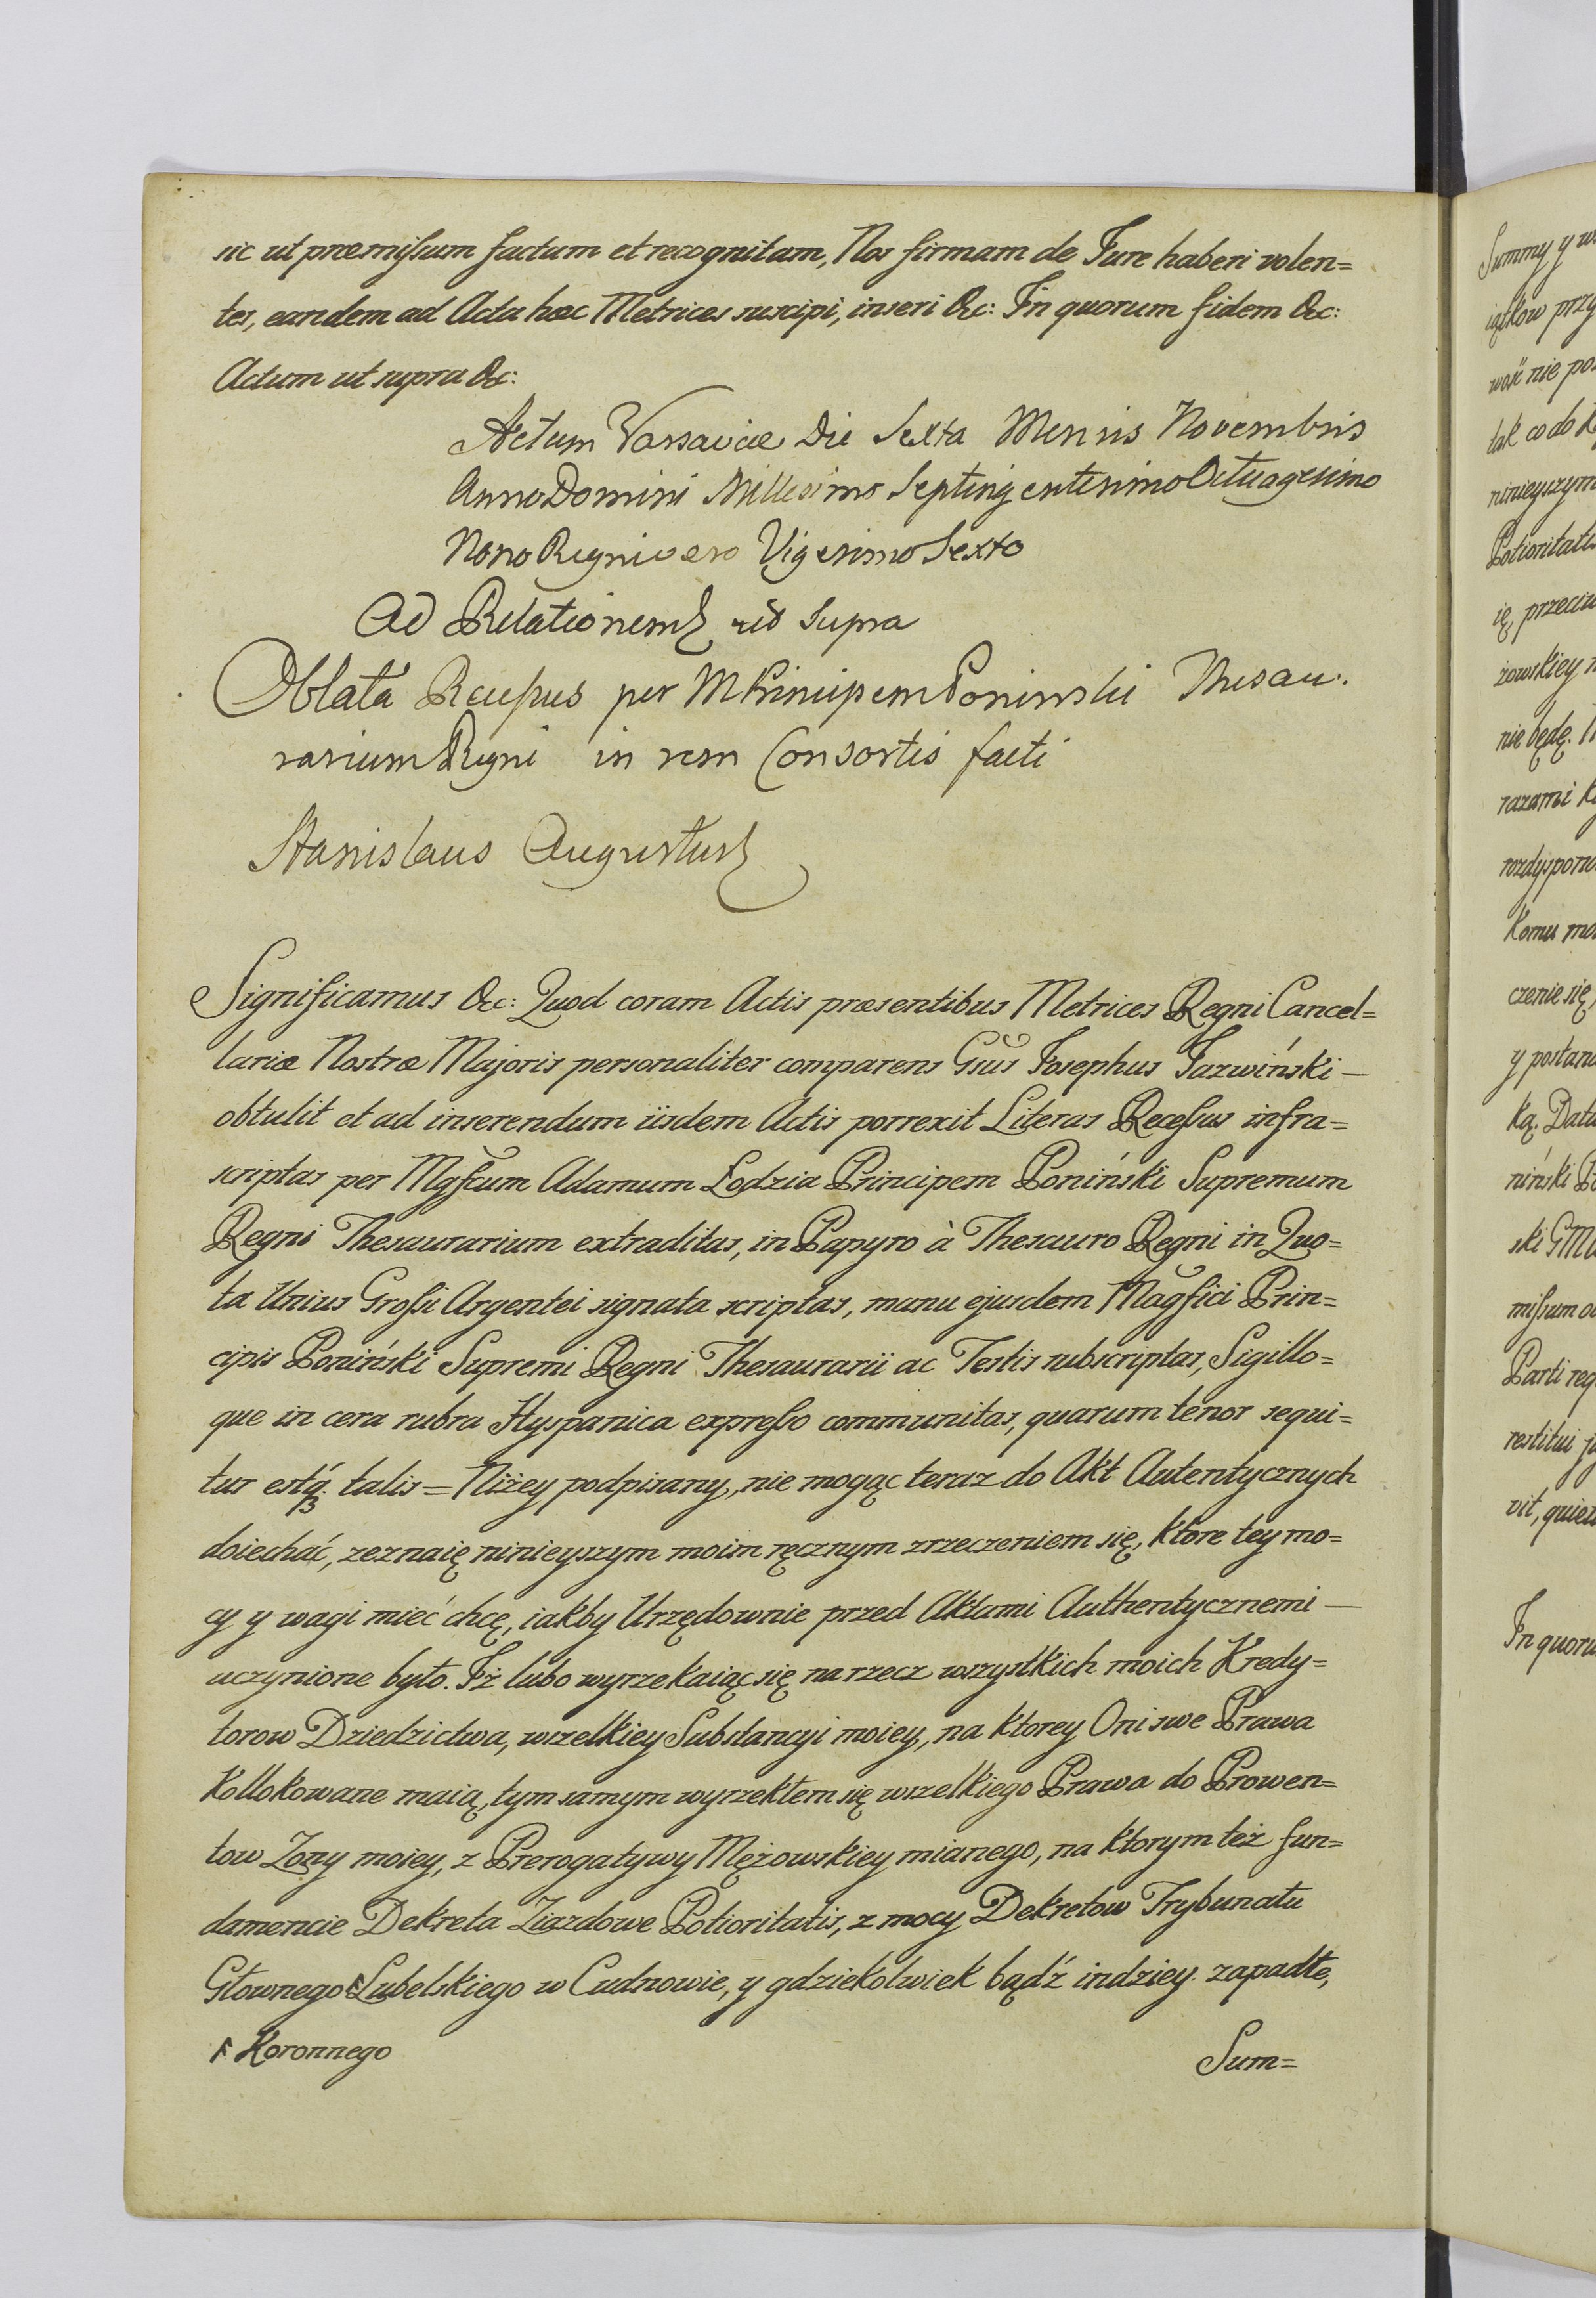 sic ut præmissum factum et recognitam, Nos firmam de Jure haberi volen=
tes, eandem ad Acta hæc Metrices suscipi, inseri &c: In quorum fidem &c:
Actum ut supra &c:
Actum Varsaviæ Die Sexta Mensis Novembris
Anno Domini Millesimo Septingentesimo Octuagesimo
Nono Regni vero Vigesimo Sexto
Ad Relationem ut Supra
Oblata Recessus per M Principem Poninski Thesau:
rarium Regni in rem Consortis facti
Stanislaus Augustus
Significamus &c: Quod coram Actis præsentibus Metrices Regni Cancel=
lariæ Nostræ Majoris personaliter comparens Gsus Josephus Jazwiński —
obtulit et ad inserendum iisdem Actis porrexit Literas Recessus infra=
scriptas per Mgfcum Adamum Łodzia Principem Poniński Supremum
Regni Thesaurarium extraditas, in Papyro à Thesauro Regni in Quo=
ta Unius Grossi Argentei signata scriptas, manu ejusdem Magfici Prin=
cipis Poniński Supremi Regni Thesaurarii ac Testis subscriptas, Sigillo=
que in cera rubra Hyspanica expresso communitas, quarum tenor sequi=
tur estq́ talis = Niżey podpisany, nie mogąc teraz do Akt Autentycznych
doiechać, zeznaię ninieyszym moim ręcznym zrzeczeniem się, ktore tey mo=
cy y wagi mieć chcę, iakby Urzędownie przed Aktami Authentycznemi —
uczynione było. Iż lubo wyrzekaiąc się na rzecz wszystkich moich Kredy=
torow Dziedzictwa, wszelkiey Substancyi moiey, na ktorey Oni swe Prawa
Kollokowane maią, tym samym wyrzekłem się wszelkiego Prawa do Prowen=
tow Żony moiey, z Prerogatywy Mężowskiey mianego, na ktorym też fun=
damencie Dekreta Ziazdowe Potioritatis, z mocy Dekretow Trybunału
Głownego ⸢ Lubelskiego w Cudnowie, y gdziekolwiek bądź indziey zapadłe,
⸢ Koronnego
Sum=
Summy y
iątkow przy
nie po
tak co do
ninieyszym
Potioritatis
ię, przeciw
żowskiey
nie będę.
razami
rozdyspono
Komu
czenie się,
y postan
ką.
niński
ski
missum
Parti
restitui
vit,
In quoru